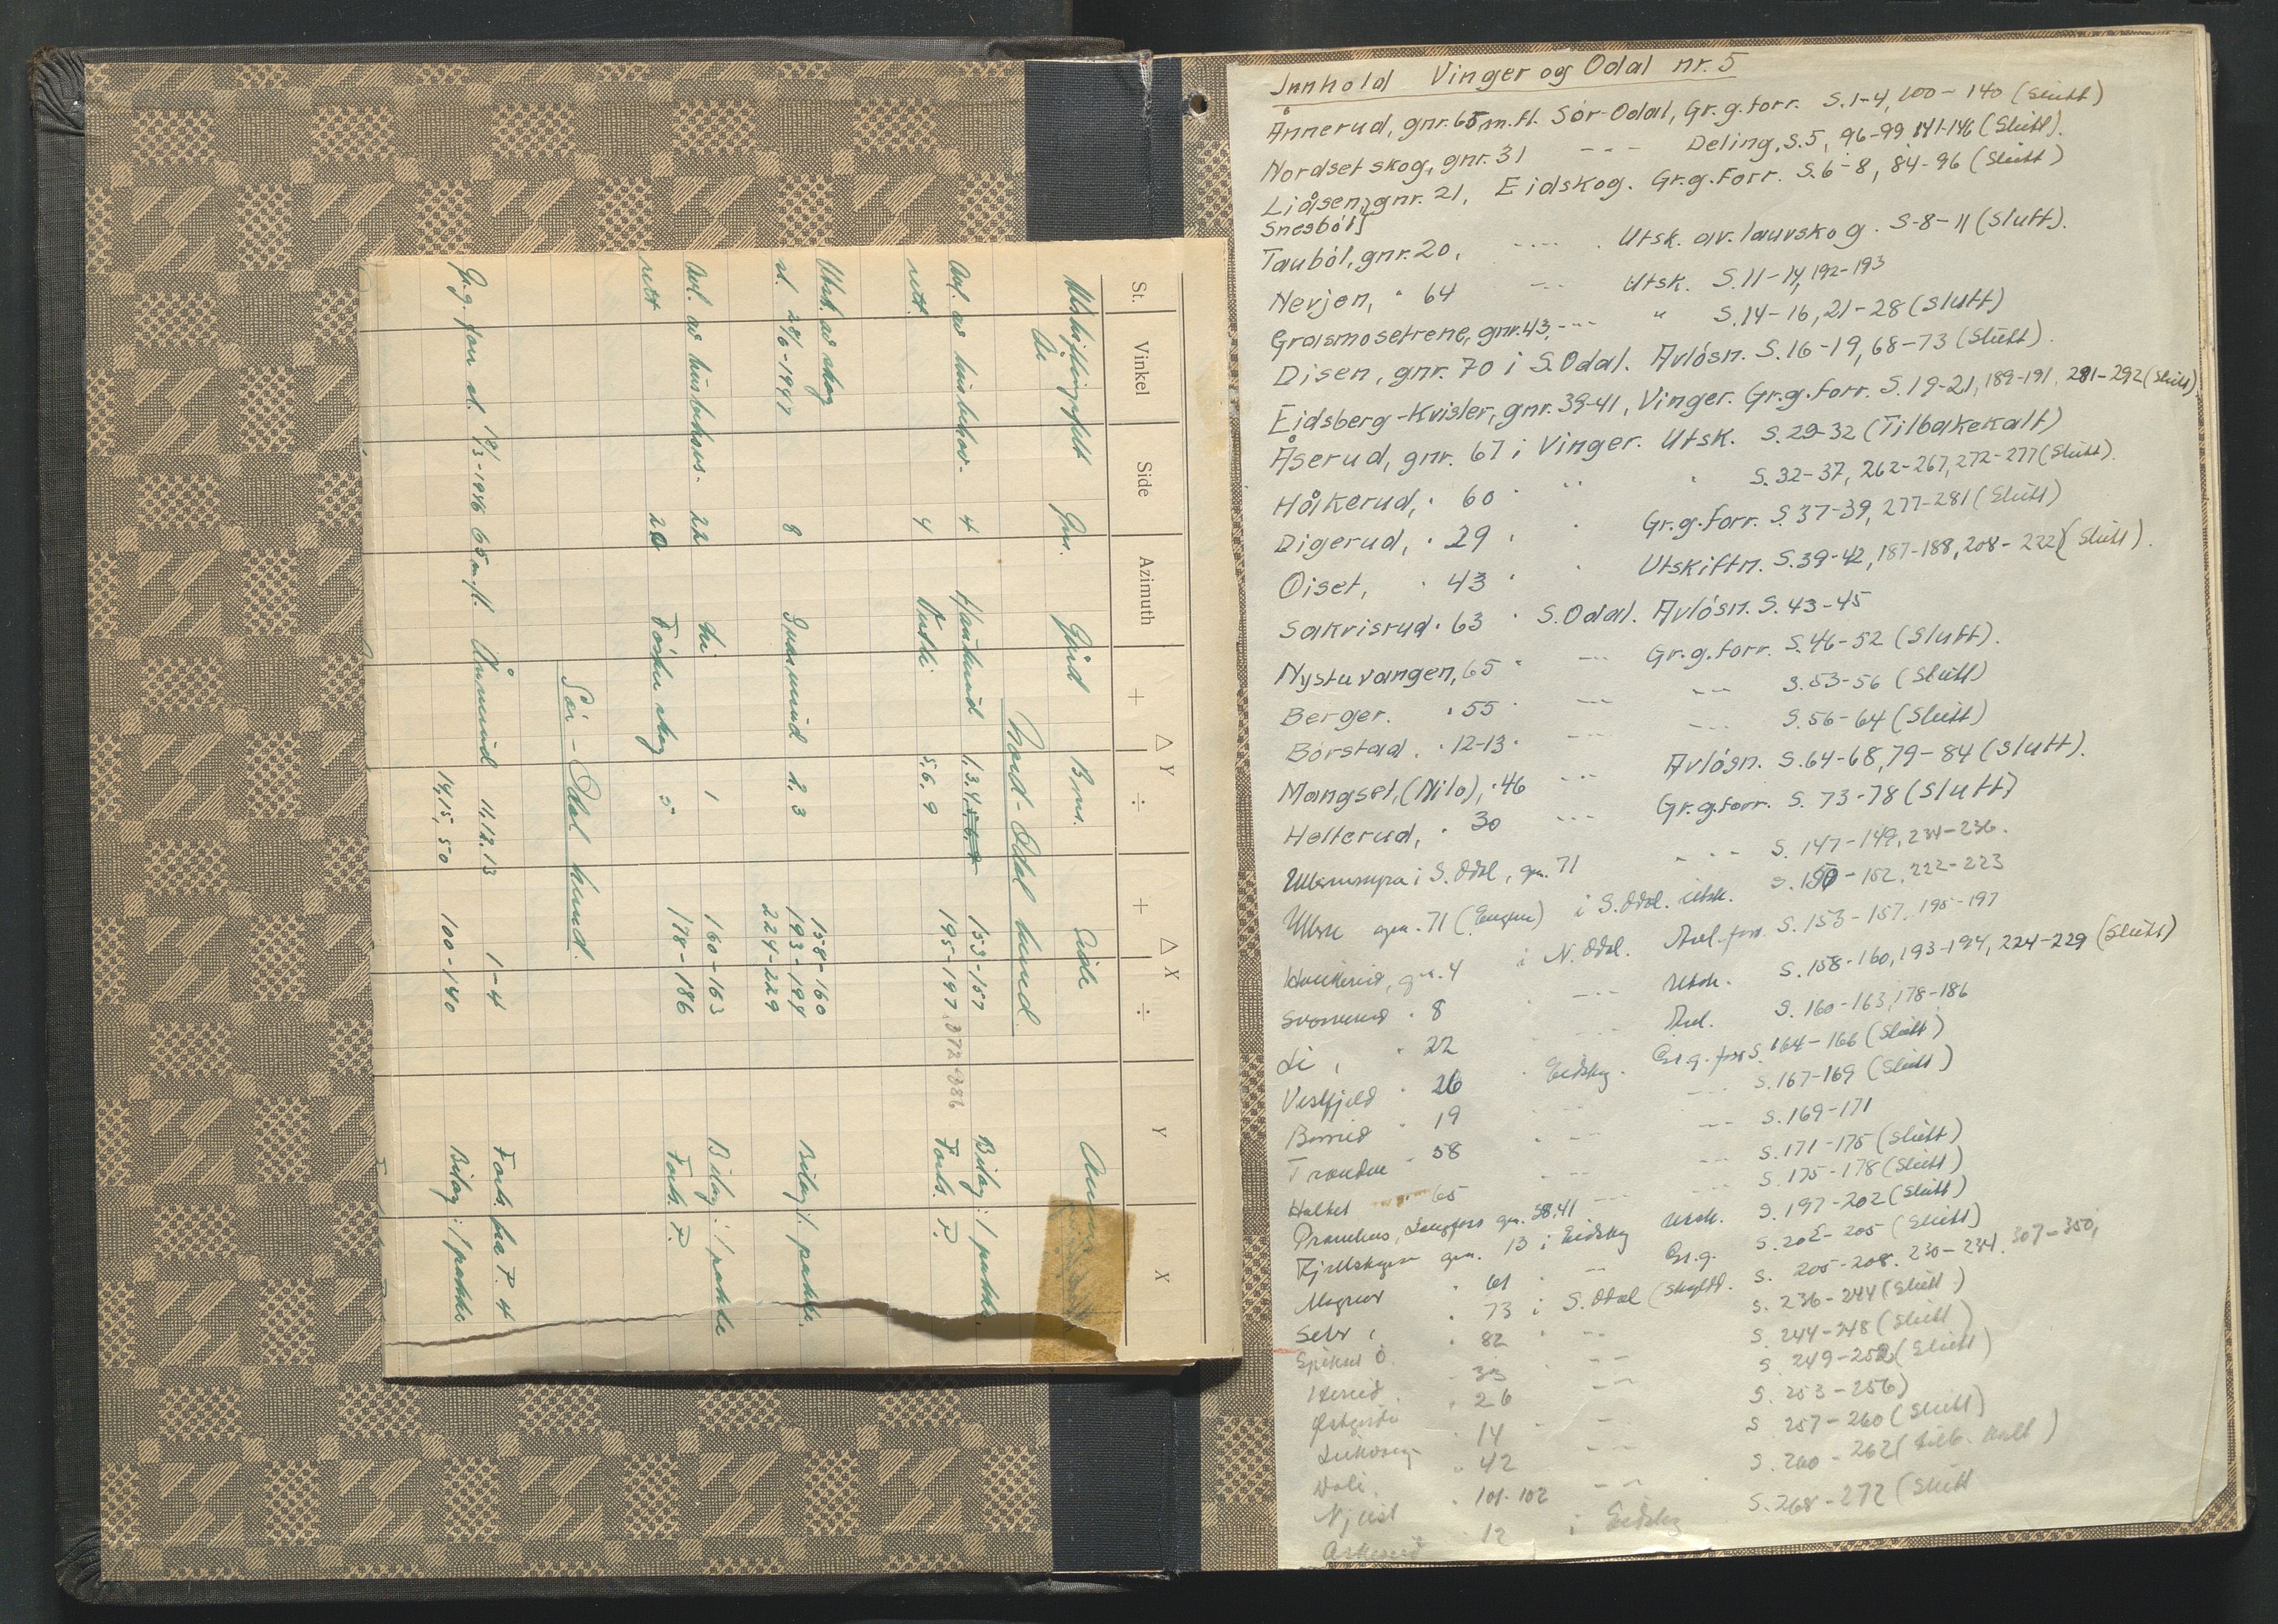 St. Vinkel Side Azimuth + △ Y ÷ + △ X ÷ Y X
Utskiftingsfelt Gnr. Gård Bnr. Side
Nord-Odal herred.
Avl. av husbehov- 4 Haukerud 1,3,4,5,6,9 153-157 Bilag: 1 pakke
rett. 4 Vestli 5,6,9 195-197, 372-386 Forts. P.
Utsk. av skog 158-160
d. 28/6-1947 8 Svarverud 2,3 193-194 Bilag: 1 pakke.
224-229
Avl. av husbehovs- 22 Li 1 160-163 Bilag: 1 pakke
rett 20 skog 5 178-186 Forts. P.
Sör-Odal herred.
Gr.g. forr d. 19/3-1946 65 m.fl. Ånnerud 11,12,13 1-4 Forts. fra P. 4
14,15,50 100-140 Bilag: 1 pakke
Innhold Vinger og Odal nr. 5
Ånnerud, gnr. 65 m.fl. Sör-Odal, Gr.g.forr. S.1-4, 100-140 (Slutt)
Nordset skog, gnr. 31 --- Deling, S.5, 96-99 141-146 (Slutt).
Liåsen, gnr. 21, Eidskog. Gr.g.forr. S.6-8, 84-96 (Slutt)
Snesböl
Tauböl, gnr. 20, ---- Utsk. av. lauvskog. S-8-11 (Slutt).
Nerjon, " 64 --- Utsk. S.11-14, 192-193
Grasmosetrene, gnr. 43, --- " S.14-16, 21-28 (Slutt)
Disen, gnr. 70 i S.Odal. Avlösn. S.16-19, 68-73 (Slutt).
Eidsberg-Kvisler, gnr. 39-41, Vinger. Gr.g.forr. S.19-21, 189-191, 281-292 (Slutt)
Åserud, gnr. 67 i Vinger. Utsk. S.29-32 (Tilbakekalt)
Håkerud, " 60 " " " S.32-37, 262-267, 272-277 (Slutt).
Digerud, " 29 " " Gr.g.forr. S.37-39, 277-281 (Slutt)
Öiset, " 43 " " Utskiftn. S.39-42, 187-188, 208-222 (Slutt).
Sakrisrud " 63 " S.Odal. Avlösn. S.43-45
Nystuvangen, 65 " --- Gr.g.forr. S.46-52 (Slutt).
Berger. " 55 " --- --- S.53-56 (Slutt)
Börstad. " 12-13 " --- --- S.56-64 (Slutt)
Mangset, (Nilo), " 46 --- Avlösn. S.64-68, 79-84 (Slutt).
Holterud, " 30 --- Gr.g.forr. S.73-78 (Slutt)
i S. Odal, gnr. 71 --- S. 147-149, 234-236.
gnr. 71 i S. Odal. Utsk. S. 150-152, 222-223
Haukerud, gnr. 4 i N. Odal. Avl. forr. S. 153-157, 195-197
Svarverud " 8 --- Utsk. S. 158-160, 193-194, 224-229 (Slutt)
Li, " 22 --- Avl. S. 160-163, 178-186
Vestfjeld " 26 " Eidskog. Gr.g. forr. S. 164-166 (Slutt)
19 --- --- S. 167-169 (Slutt)
58 --- --- S. 169-171
65 --- --- S. 171-175 (Slutt)
gnr. 58.41 --- --- S. 175-178 (Slutt)
gnr. 13 i Eidskog Utsk. S. 197-202 (Slutt)
Magnor " 61 " --- Gr.g. S. 202-205 (Slutt)
" 73 i S. Odal S. 205-208. 230-234. 307-350,
" 82 " --- S. 236-244 (Slutt)
33 --- S. 244-248 (Slutt)
" 26 --- S. 249-252 (Slutt)
" 14 --- S. 253-256)
" 42 --- S. 257-260 (Slutt)
" 101-102 --- S. 260-262 (tilb. kalt)
12 i Eidskog S. 268-272 (Slutt